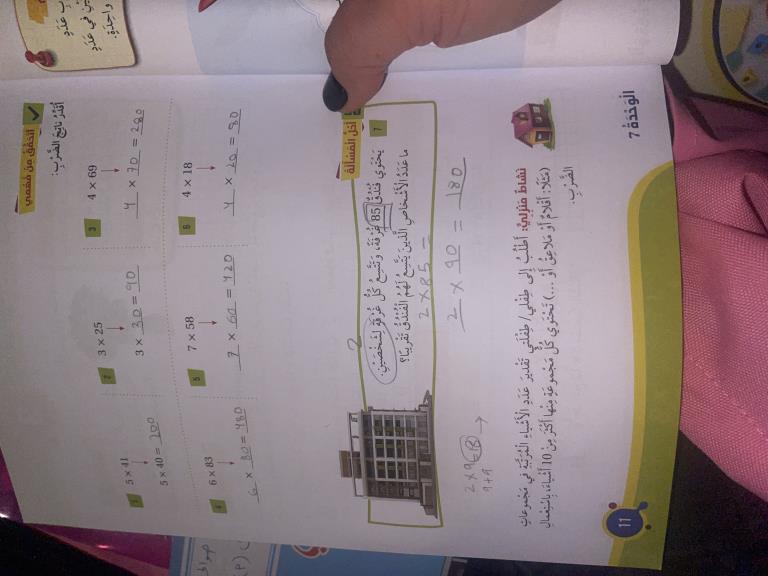 أَتَحَقَّقُ مِنْ فَهْمِي
أُقَدِّرُ ناتِجَ الضَّرْبِ:
1 5 × 41
5 × 40 = 200
2 3 × 25
3 × 30 = 90
3 4 × 69
4 × 70 = 280
4 6 × 83
6 × 80 = 480
5 7 × 58
7 × 60 = 420
6 4 × 18
4 × 20 = 80
أَحُلُّ الْمَسْأَلَةَ
7 يَحْتَوِي فُنْدُقٌ 85 غُرْفَةً، وَتَتَّسِعُ كُلُّ غُرْفَةٍ لِشَخْصَيْنِ.
2
ما عَدَدُ الْأَشْخاصِ الَّذينَ يَتَّسِعُ لَهُمُ الْفُنْدُقُ تَقْريبًا؟
2 × 85 =
2 × 90 = 180
2 × 9 = 18
9 + 9
نَشاطٌ مَنْزِلِيٌّ: أَطْلُبُ إِلى طِفْلي/ طِفْلَتي تَقْديرَ عَدَدِ الْأَشْياءِ الْمُرَتَّبَةِ في مَجْموعاتٍ
(مَثَلًا: أَقْلامٌ أَوْ مَلاعِقُ أَوْ ...) تَحْتَوي كُلُّ مَجْموعَةٍ مِنْها أَكْثَرَ مِنْ 10 أَشْياءَ، بِاسْتِعْمالِ
الضَّرْبِ.
الْوَحْدَةُ 7
11